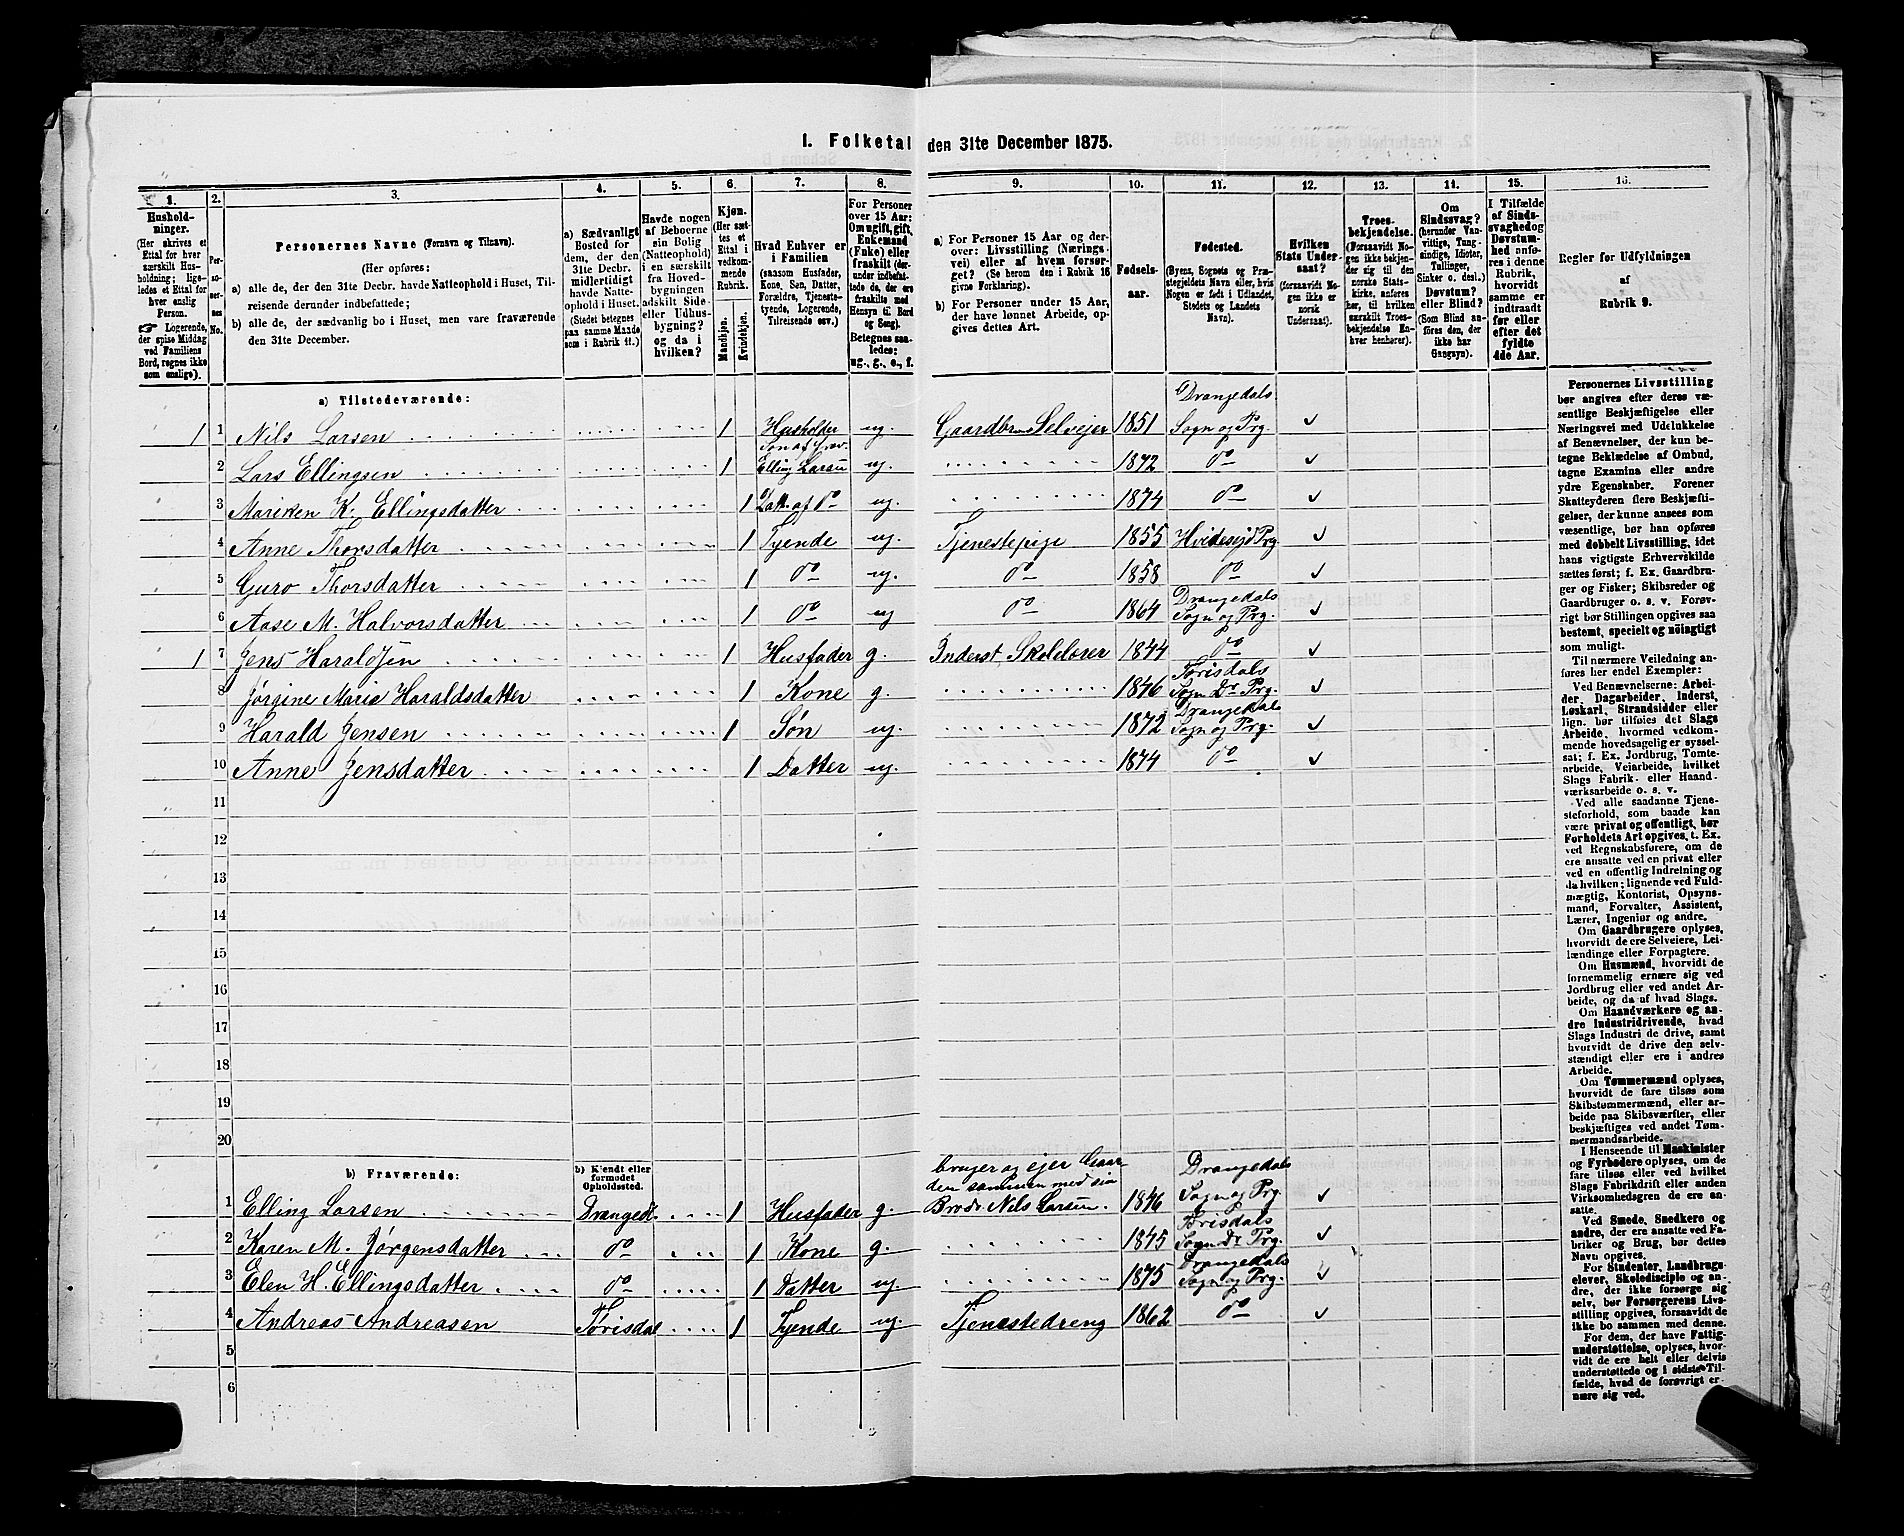 1. Folketal den 31te December 1875.
1. 2. 3. 4. 5. 6. 7. 8. 9. 10. 11. 12. 13. 14. 15. 16.
Hushold-
ninger.
(Her skrives et
Ettal for hver
særskilt Hus-
holdning; lige-
ledes et Ettal for
hver enslig
Person.
Logerende,
der spise Middag
ved Familiens
Bord, regnes ikke
som enslige).
Per-
so-
ner-
nes
No.
Personernes Navne (Fornavn og Tilnavn).
(Her opføres:
a) alle de, der den 31te Decbr. havde Natteophold i Huset, Til-
reisende derunder indbefattede;
b) alle de, der sædvanlig bo i Huset, men vare fraværende
den 31te December.
a) Sædvanligt
Bosted for
dem, der den
31te Decbr.
midlertidigt
havde Natte-
ophold i Huset.
(Stedet betegnes
paa samme Maade
som i Rubrik 11.)
Havde nogen
af Beboerne
sin Bolig
(Natteophold)
i en særskilt
fra Hoved-
bygningen
adskilt Side-
eller Udhus-
bygning?
og da i
hvilken?
Kjøn.
(Her sæt-
tes et
Ettal i
vedkom-
mende
Rubrik.
Mandkjøn.
Kvindekjøn.
Hvad Enhver er
i Familien
(saasom Husfader,
Kone, Søn, Datter,
Forældre, Tjeneste-
tyende, Logerende,
Tilreisende osv.)
For Personer
over 15 Aar:
Om ugift, gift,
Enkemand
(Enke) eller
fraskilt (der-
under indbefat-
tede de, der ere
fraskilte med
Hensyn til Bord
og Seng).
Betegnes saa-
ledes:
ug., g., e., f.
a) For Personer 15 Aar og der-
over: Livsstilling (Nærings-
vei) eller af hvem forsør-
get? (Se herom den i Rubrik 16
givne Forklaring).
b) For Personer under 15 Aar,
der have lønnet Arbeide, op-
gives dettes Art.
Fødsels-
aar.
Fødested.
(Byens, Sognets og Præ-
stegjeldets Navn eller, hvis
Nogen er født i Udlandet,
Stedets og Landets
Navn).
Hvilken
Stats Under-
saat?
(forsaavidt No-
gen ikke er
norsk
Undersaat).
Troes-
bekjendelse.
(Forsaavidt No-
gen ikke bekjen-
der sig til den
norske Stats-
kirke, anføres
her, til hvilken
særskilt Troes-
bekjendelse En-
hver henhører).
Om
Sindssvag?
(herunder Van-
vittige, Tung-
sindige, Idioter,
Tullinger,
Sinker o. desl.)
Døvstum?
eller Blind?
(Som Blind an-
føres den, der
ikke har
Gangsyn).
I Tilfælde
af Sinds-
svaghed og
Døvstum-
hed anfø-
res i denne
Rubrik,
hvorvidt
samme er
indtraadt
før eller
efter det
fyldte
4de Aar.
Regler for Udfyldningen
af
Rubrik 9.
a) Tilstedeværende:
1 1 Nils Larsen 1 Husholder ug. Gaardbr. Selvejer 1851 Drangedals Sogn og Prg
2 Lars Ellingsen 1 Søn af frav. Elling Larsen ug. 1872 do
3 Mariken K. Ellingsdatter 1 Datt. af do ug. 1874 do
4 Anne Thorsdatter 1 Tyende ug. Tjenestepige 1855 Hvidesejd Prg
5 Guro Thorsdatter 1 do ug. do 1858 do
6 Aase M. Halvorsdatter 1 do ug do 1864 Drangedals Sogn og Prg.
1 7 Jens Haraldsen 1 Husfader g. Inderst, Skolelærer 1844 do
8 Jørgine Marie Haraldsdatter 1 Kone g. 1846 Tørisdals Sogn Dr. Prg.
9 Harald Jensen 1 Søn ug. 1872 Drangedals Sogn og Prg.
10 Anne Jensdatter 1 Datter ug. 1874 do
11
12
13
14
15
16
17
18
19
20
b) Fraværende:
b) Kjendt eller
formodet
Opholdssted.
1 Elling Larsen Drangedl. 1 Husfader g. bruger og ejer Gaar-den sammen med sin Broder Nils Larsen. 1846 Drangedals Sogn og Prg.
2 Karen M. Jørgensdatter do 1 Kone g. 1845 Tørisdals Sogn Dr. Prg.
3 Elen H. Ellingsdatter do 1 Datter ug. 1875 Drangedals Sogn og Prg.
4 Andreas Andreasen Tørisdal 1 Tyende ug. Tjenestedreng 1862 do
5
6
Personernes Livsstilling
bør angives efter deres væ-
sentlige Beskjæftigelse eller
Næringsvei med Udelukkelse
af Benævnelser, der kun be-
tegne Beklædelse af Ombud,
tagne Examina eller andre
ydre Egenskaber. Forener
Skatteyderen flere Beskjæfti-
gelser, der kunne ansees som
væsentlige, bør han opføres
med dobbelt Livsstilling, idet
hans vigtigste Erhvervskilde
sættes først; f. Ex. Gaardbru-
ger og Fisker; Skibsreder og
Gaardbruger o. s. v. Forøv-
rigt bør Stillingen opgives saa
bestemt, specielt og nøiagtigt
som muligt.
Til nærmere Veiledning an-
føres her endel Exempler:
Ved Benævnelserne: Arbei-
der, Dagarbeider, Inderst,
Løskarl, Strandsidder eller
lign. bør tilføies det Slags
Arbeide, hvormed vedkom-
mende hovedsagelig er syssel-
sat; f. Ex. Jordbrug, Tomte-
arbeide, Veiarbeide, hvilket
Slags Fabrik- eller Haand-
værksarbeide o. s. v.
Ved alle saadanne Tjene-
steforhold, som baade kan
være privat og offentligt, bør
Forholdets Art opgives, t. Ex.
ved Regnskabsførere, om de
ere ansatte ved en privat eller
ved en offentlig Indretning og
da hvilken; lignende ved Fuld-
mægtig, Kontorist, Opsyns-
mand, Forvalter, Assistent,
Lærer, Ingeniør og andre.
Om Gaardbrugere oplyses,
hvorvidt de ere Selveiere, Lei-
lændinge eller Forpagtere.
Om Husmænd, hvorvidt de
fornemmelig ernære sig ved
Jordbrug eller ved andet Ar-
beide, og da af hvad Slags.
Om Haandværkere og an-
dre Industridrivende, hvad
Slags Industri de drive, samt
hvorvidt de drive den selv-
stændigt eller ere i andres
Arbeide.
Om Tømmermænd oplyses,
hvorvidt de fare tilsøs som
Skibstømmermænd, eller ar-
beide paa Skibsværfter, eller
beskjæftiges ved andet Tøm-
mermandsarbeide.
I Henseende til Maskinister
og Fyrbødere oplyses, om de
fare tilsøs eller ved hvilket
Slags Fabrikdrift eller anden
Virksomhedsgren de ere an-
satte.
Ved Smede, Snedkere og
andre, der ere ansatte ved Fa-
briker og Brug, bør dettes
Navn opgives.
For Studenter, Landbrugs-
elever, Skoledisciple og an-
dre, der ikke forsørge sig
selv, bør Forsørgerens Livs-
stilling opgives, forsaavidt de
ikke bo sammen med denne.
For dem, der have Fattig-
understøttelse, oplyses, hvor-
vidt de ere helt eller delvis
understøttede og i sidste Til-
fælde, hvad de forøvrigt er-
nære sig ved.